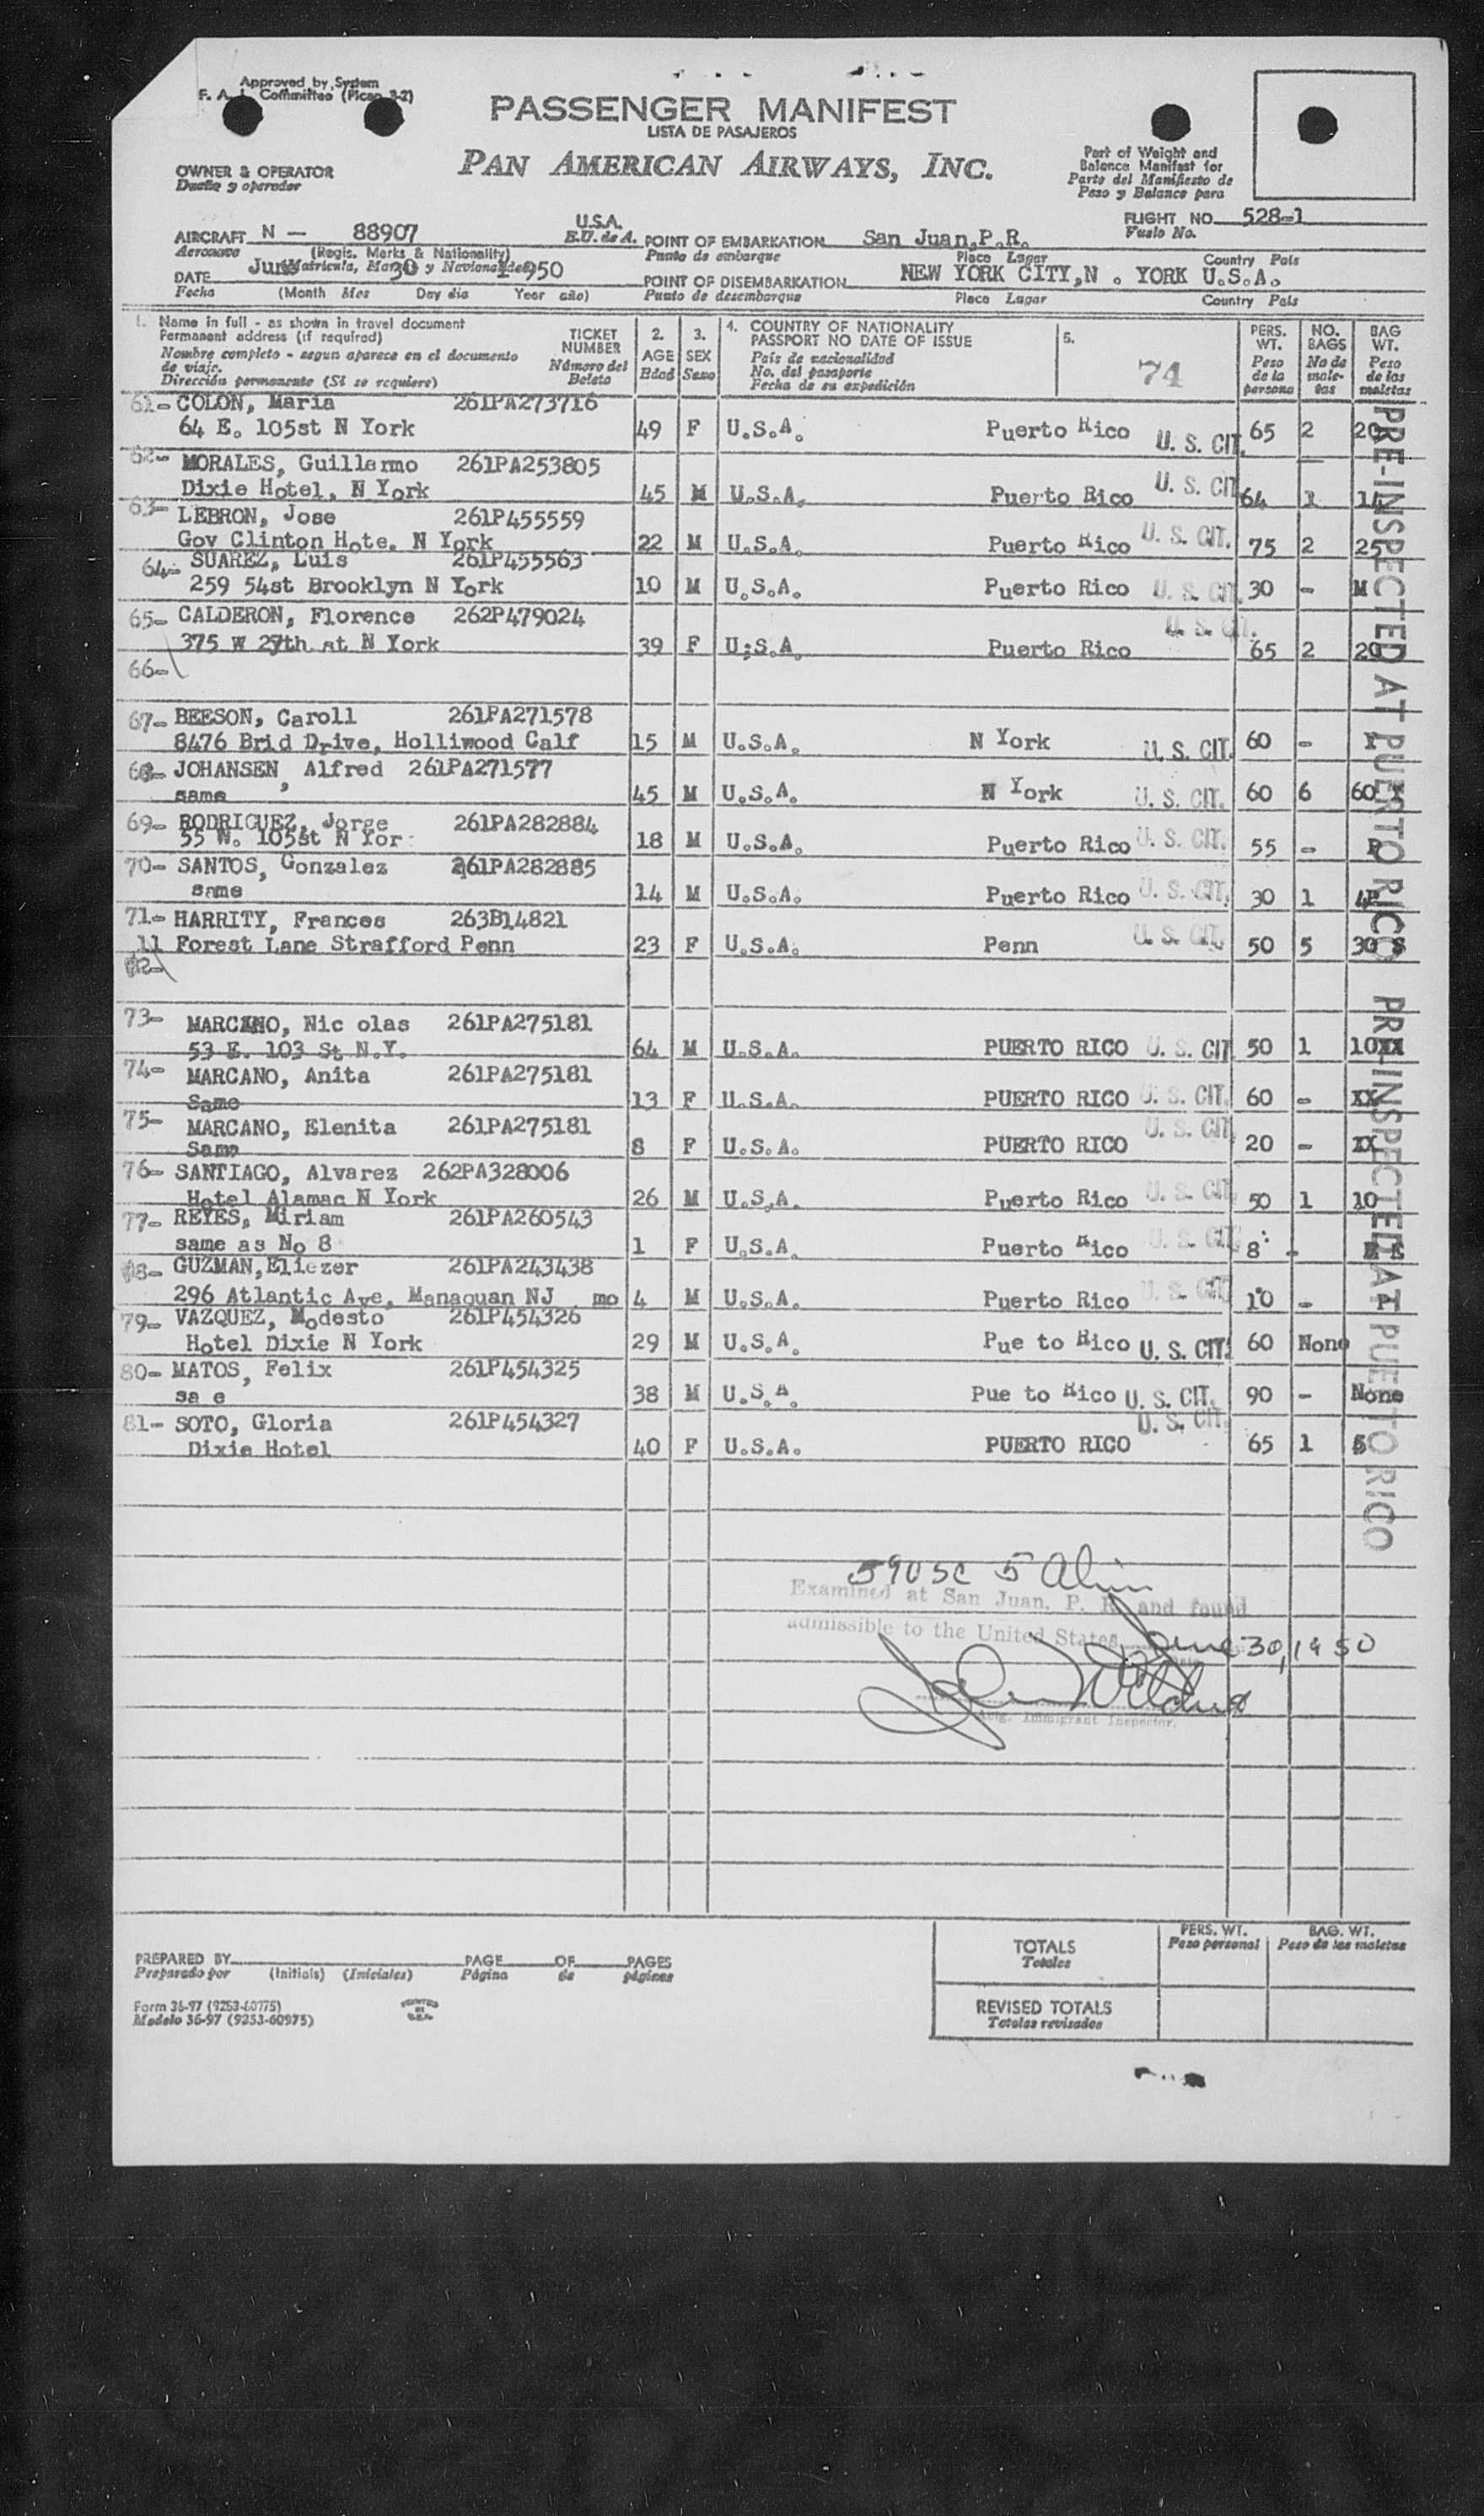 Approved by System
F. A. L. Committee (Picao 3-2)
PASSENGER MANIFEST
LISTA DE PASAJEROS
PAN AMERICAN AIRWAYS, INC.
OWNER & OPERATOR
Dueño y operador
Part of Weight and
Balance Manifest for
Parte del Manifiesto de
Peso y Balance para
FLIGHT NO. 528-1
Vuelo No.
AIRCRAFT N — 88907 U.S.A.
Aeronave (Regis. Marks & Nationality) E.U. de A.
POINT OF EMBARKATION San Juan,P.R.
Punto de embarque Place Lugar Country País
DATE June 30 1950
Fecha (Month Mes Day día Year año)
POINT OF DISEMBARKATION NEW YORK CITY,N . YORK U.S.A.
Punto de desembarque Place Lugar Country País
1. Name in full - as shown in travel document
Permanent address (if required)
Nombre completo - segun aparece en el documento
de viaje.
Dirección permanente (Si se requiere)
TICKET
NUMBER
Número del
Boleto
2.
AGE
Edad
3.
SEX
Sexo
4. COUNTRY OF NATIONALITY
PASSPORT NO DATE OF ISSUE
País de nacionalidad
No. del pasaporte
Fecha de su expedición
5.
74
PERS.
WT.
Peso
de la
persona
NO.
BAGS
No de
male-
tas
BAG
WT.
Peso
de las
maletas
61- COLON, Maria 261PA273716
64 E. 105st N York 49 F U.S.A. Puerto Rico U. S. CIT. 65 2 20
62- MORALES, Guillermo 261PA253805
Dixie Hotel, N York 45 M U.S.A. Puerto Rico U. S. CIT. 64 1 14
63- LEBRON, Jose 261P455559
Gov Clinton Hote. N York 22 M U.S.A. Puerto Rico U. S. CIT. 75 2 25
64- SUAREZ, Luis 261P455563
259 54st Brooklyn N York 10 M U.S.A. Puerto Rico U. S. CIT. 30 - M
65- CALDERON, Florence 262P479024
375 W 27th st N York 39 F U;S.A. Puerto Rico U. S. CIT. 65 2 20
66-
67- BEESON, Caroll 261PA271578
8476 Brid Drive, Holliwood Calf 15 M U.S.A. N York U. S. CIT. 60 -
68- JOHANSEN, Alfred 261PA271577
same 45 M U.S.A. N York U. S. CIT. 60 6 60
69- RODRIGUEZ, Jorge 261PA282884
55 W. 105st N Yor 18 M U.S.A. Puerto Rico U. S. CIT. 55 -
70- SANTOS, Gonzalez 261PA282885
same 14 M U.S.A. Puerto Rico U. S. CIT. 30 1 4
71- HARRITY, Frances 263B14821
11 Forest Lane Strafford Penn 23 F U.S.A. Penn U. S. CIT. 50 5 30
72-
73- MARCANO, Nic olas 261PA275181
53 E. 103 St N.Y. 64 M U.S.A. PUERTO RICO U. S. CIT 50 1 10XX
74- MARCANO, Anita 261PA275181
Same 13 F U.S.A. PUERTO RICO U. S. CIT. 60 - XX
75- MARCANO, Elenita 261PA275181
Same 8 F U.S.A. PUERTO RICO U. S. CIT. 20 - XX
76- SANTIAGO, Alvarez 262PA328006
Hotel Alamac N York 26 M U.S.A. Puerto Rico U. S. CIT. 50 1 10
77- REYES, Miriam 261PA260543
same as No 8 1 F U.S.A. Puerto Rico U. S. CIT. 8 -
78- GUZMAN,Eliezer 261PA243438
296 Atlantic Ave, Manaquan NJ mo 4 M U.S.A. Puerto Rico U. S. CIT. 10 -
79- VAZQUEZ, Modesto 261P454326
Hotel Dixie N York 29 M U.S.A. Pue to Rico U. S. CIT. 60 None
80- MATOS, Felix 261P454325
sa e 38 M U.S.A. Pue to Rico U. S. CIT. 90 - None
81- SOTO, Gloria 261P454327
Dixie Hotel 40 F U.S.A. PUERTO RICO U. S. CIT. 65 1 5
PRE-INSPECTED AT PUERTO RICO
PRE-INSPECTED AT PUERTO RICO
59 USC 5 Alien
Examined at San Juan, P. R. and found
admissible to the United States June 30, 1950
Actg. Immigrant Inspector.
PREPARED BY PAGE OF PAGES
Preparado por (Initials) (Iniciales) Página de páginas
Form 36-97 (9253-60975)
Modelo 36-97 (9253-60975)
PRINTED
IN
U.S.A.
PERS. WT.
Peso personal
BAG. WT.
Peso de las maletas
TOTALS
Totales
REVISED TOTALS
Totales revisados